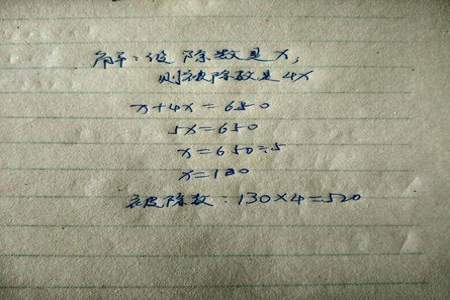 解：设除数是x,
则被除数是4x
x+4x=650
5x=650
x=650÷5
x=130
被除数：130×4=520